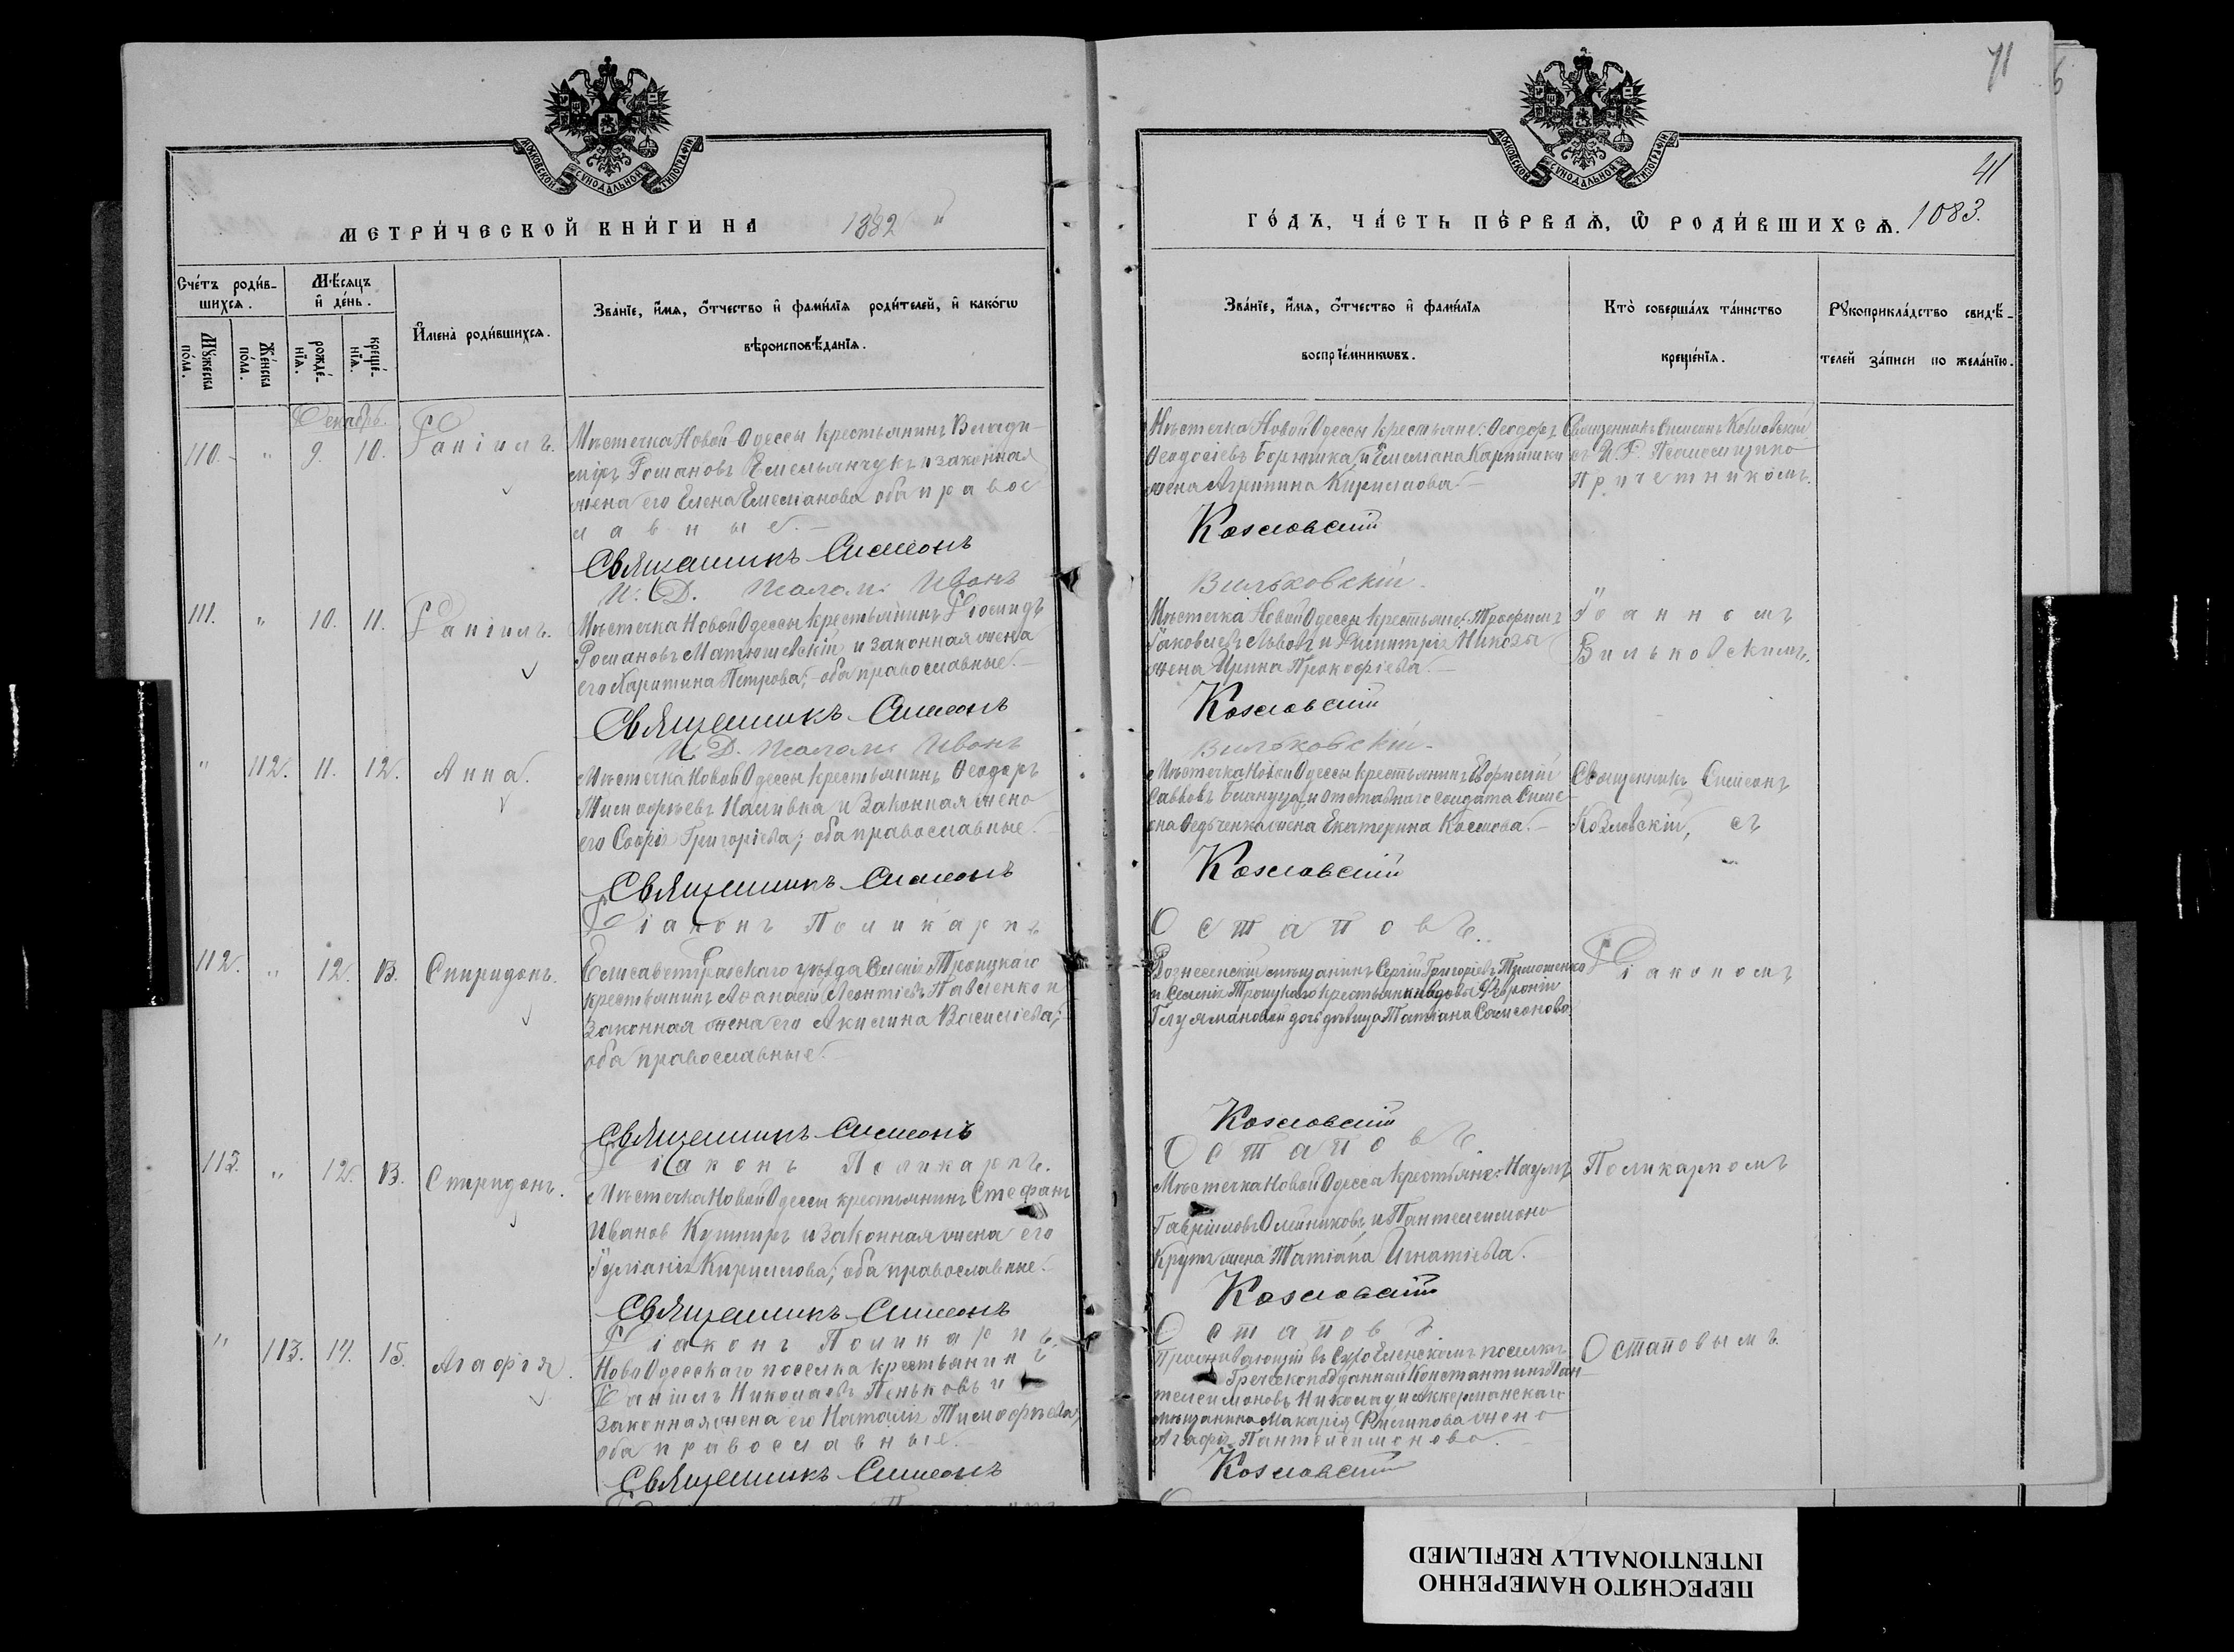 71
41
1083.
МОСКОВСКОЙ СУНОДАЛЬНОЙ ТИПОГРАФІИ
МОСКОВСКОЙ СУНОДАЛЬНОЙ ТИПОГРАФІИ
МЕТРИ́ЧЕСКОЙ КНИ́ГИ НА 1882
ГО́ДЪ, ЧА́СТЬ ПЕ́РВАѦ, Ѡ РОДИ́ВШИХСѦ.
Счéтъ роди́вшихсѧ.
Мѣ́сѧцъ и҆ дéнь.
И҆менà роди́вшихсѧ.
Звáнїе, и҆́мѧ, ѻ҆́тчество и҆ фами́лїѧ роди́телей, и҆ какóгѡ
вѣроисповѣ́данїѧ.
Мꙋ́жеска пóла.
Жéнска пóла.
рождéнїѧ.
крещéнїѧ.
Звáнїе, и҆́мѧ, ѻ҆́тчество и҆ фами́лїѧ
воспрїéмникѡвъ.
Ктò совершáлъ тáинство
крещéнїѧ.
Рꙋкоприклáдство свидѣ́-
телей зáписи по желáнїю.
Декабрь
110. " 9. 10. Даніилъ.
Мѣстечка Новой Одессы крестьянинъ Влади-
міръ Романовъ Емельянчукъ и законная
жена его Елена Емеліанова оба правос
лавные.
Священникъ Симеонъ
И. Д. Псалом. Иванъ
Мѣстечка Новой Одессы крестьяне: Ѳеодоръ
Ѳеодосіевъ и Емеліана
жена Агрипина Кирилова
Козловскій
Вильковскій
Священникъ Симеонъ Козловскій
съ И. Д. Псаломщика
причетникомъ.
111. " 10. 11. Даніилъ.
Мѣстечка Новой Одессы крестьянинъ Діомидъ
Романовъ Матюшевскій и законная жена
его Харитина Петрова; оба православные.
Священникъ Симеонъ
И. Д. Псалом. Иванъ
Мѣстечка Новой Одессы крестьяне: Трофимъ
Іаковлевъ Львовъ и Димитрія
жена Ирина Прокофіева
Козловскій
Вильковскій
Іоанномъ
Вильковскимъ.
" 112. 11. 12. Анна.
Мѣстечка Новой Одессы крестьянинъ Ѳеодоръ
Тимофѣевъ Наливка и законная жена
его Софія Григоріева; оба православные.
Священникъ Симеонъ
Діаконъ Поликарпъ
Мѣстечка Новой Одессы крестьянинъ
Саввовъ и отставнаго солдата Симе-
она Федченка жена Екатерина Космова.
Козловскій
Остаповъ.
Священникъ Симеонъ
Козловскій, съ
112. " 12. 13. Спиридонъ.
Елисаветградскаго уѣзда Селенія Троицкаго
крестьянинъ Аѳанасій Леонтіевъ Павленко и
законная жена его Акилина Василіева;
оба православные.
Священникъ Симеонъ
Діаконъ Поликарпъ.
Вознесенскій мѣщанинъ Сергій Григоріевъ Тимошенко
и Селенія Троицкаго крестьянки вдовы Февроніи
дочь дѣвица Татіана Самсонова.
Козловскій
Остаповъ
Діакономъ
113. " 12. 13. Спиридонъ.
Мѣстечка Новой Одессы крестьянинъ Стефанъ
Иванов Кушниръ и законная жена его
Іуліанія Кирилова; оба православные.
Священникъ Симеонъ
Діаконъ Поликарпъ.
Мѣстечка Новой Одесса крестьяне: Наумъ
Гавріиловъ Олейниковъ, и Пантелеимона
Крутъ жена Татіана Игнатіева.
Козловскій
Остаповъ
Поликарпомъ
" 113. 14. 15. Агафія.
Ново Одесскаго поселка крестьянинъ
Даніилъ Николаевъ Пеньковъ и
законная жена его Наталія Тимофѣева;
оба православные.
Священникъ Симеонъ
Проживающій въ Сухо Еленскомъ поселкѣ
Греческоподданный Константинъ Пан-
телеимоновъ и Аккерманскаго
мѣщанина Макарія Филипова жена
Агафія Пантелеимонова.
Козловскій
Остаповымъ
ПЕРЕСНЯТО НАМЕРЕННО
INTENTIONALLY REFILMED